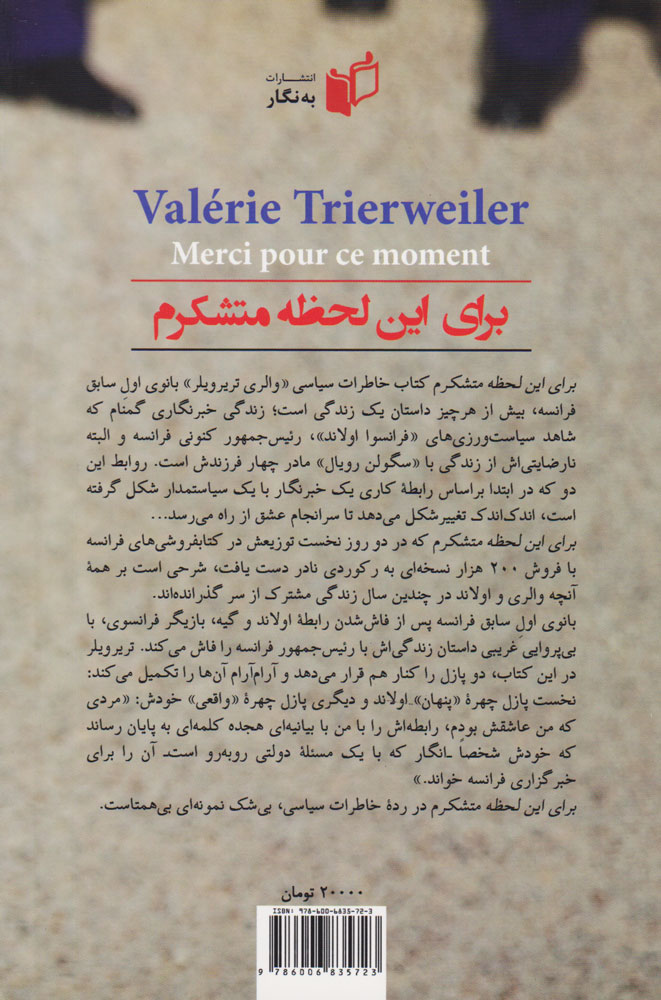 انتشارات
به‌نگار
Valérie Trierweiler
Merci pour ce moment
برای این لحظه متشکرم
برای این لحظه متشکرم کتاب خاطرات سیاسی «والری تریرویلر» بانوی اولِ سابق
فرانسه، بیش از هرچیز داستان یک زندگی است؛ زندگی خبرنگاری گمنام که
شاهد سیاست‌ورزی‌های «فرانسوا اولاند»، رئیس‌جمهور کنونی فرانسه و البته
نارضایتی‌اش از زندگی با «سگولن رویال» مادر چهار فرزندش است. روابط این
دو که در ابتدا براساس رابطهٔ کاری یک خبرنگار با یک سیاستمدار شکل گرفته
است، اندک‌اندک تغییرشکل می‌دهد تا سرانجام عشق از راه می‌رسد...
برای این لحظه متشکرم که در دو روز نخست توزیعش در کتابفروشی‌های فرانسه
با فروش ۲۰۰ هزار نسخه‌ای به رکوردی نادر دست یافت، شرحی است بر همهٔ
آنچه والری و اولاند در چندین سال زندگی مشترک از سر گذرانده‌اند.
بانوی اولِ سابق فرانسه پس از فاش‌شدن رابطهٔ اولاند و گیه، بازیگر فرانسوی، با
بی‌پروایی غریبی داستان زندگی‌اش با رئیس‌جمهور فرانسه را فاش می‌کند. تریرویلر
در این کتاب، دو پازل را کنار هم قرار می‌دهد و آرام‌آرام آن‌ها را تکمیل می‌کند:
نخست پازل چهرهٔ «پنهان» اولاند و دیگری پازل چهرهٔ «واقعی» خودش: «مردی
که من عاشقش بودم، رابطه‌اش را با من با بیانیه‌ای هجده کلمه‌ای به پایان رساند
که خودش شخصاً ـ انگار که با یک مسئلهٔ دولتی روبه‌رو است ـ آن را برای
خبرگزاری فرانسه خواند.»
برای این لحظه متشکرم در ردهٔ خاطرات سیاسی، بی‌شک نمونه‌ای بی‌همتاست.
۲۰۰۰۰ تومان
ISBN: 978-600-6835-72-3
9 786006 835723